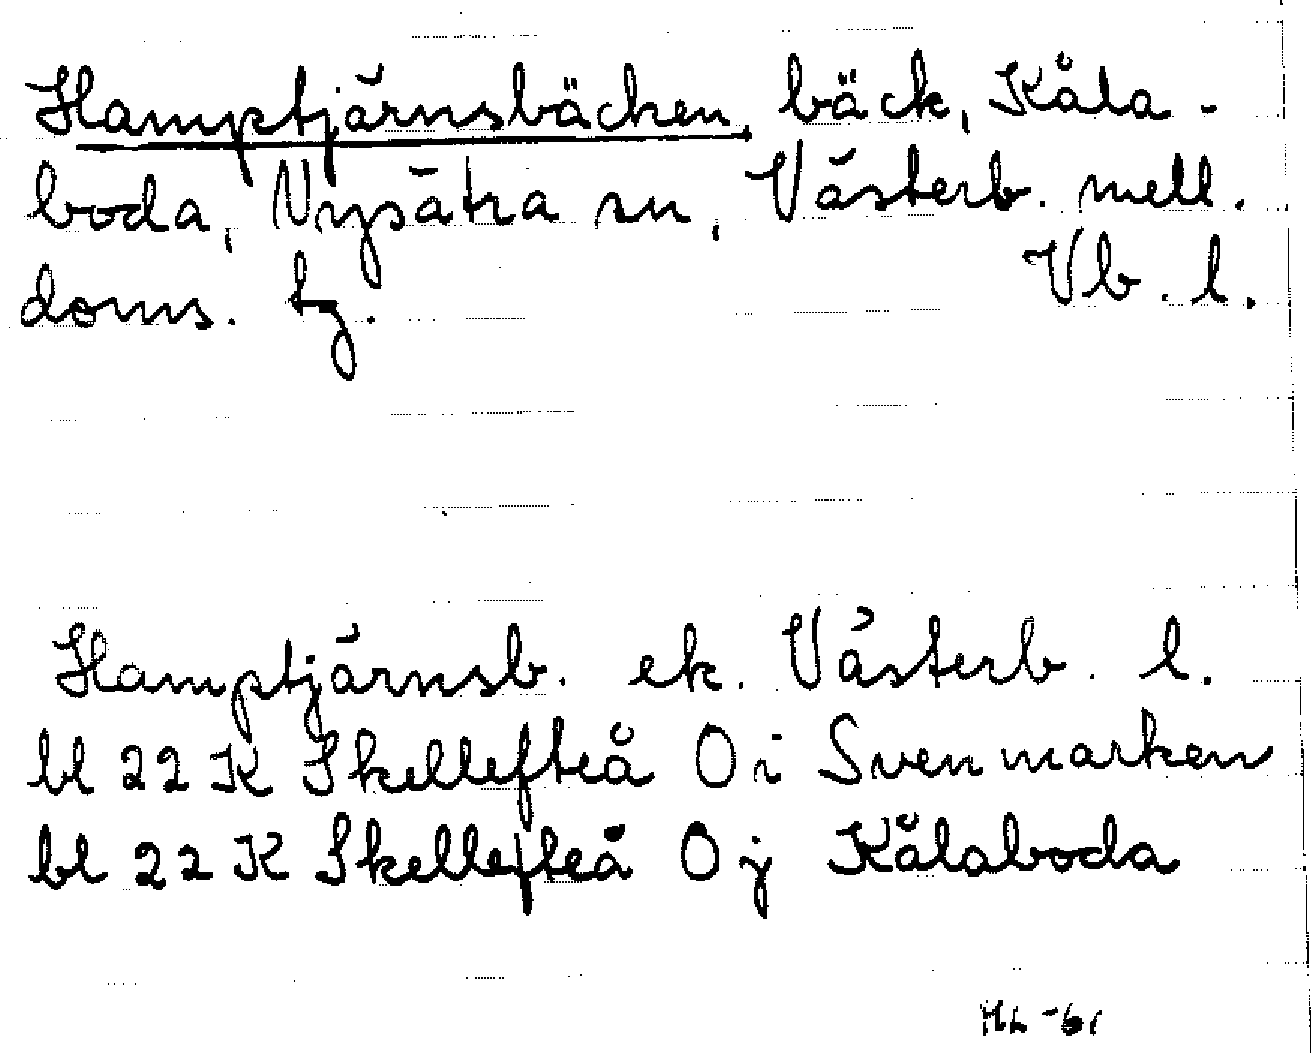 Hamptjärnsbäcken, bäck, Kåla-
boda, Nysätra sn, Västerb. mell.
doms. tg. Vb. l.
Hamptjärnsb. ek. Västerb. l.
bl 22 K Skellefteå 0 i Svenmarken
bl 22 K Skellefteå 0 j Kålaboda